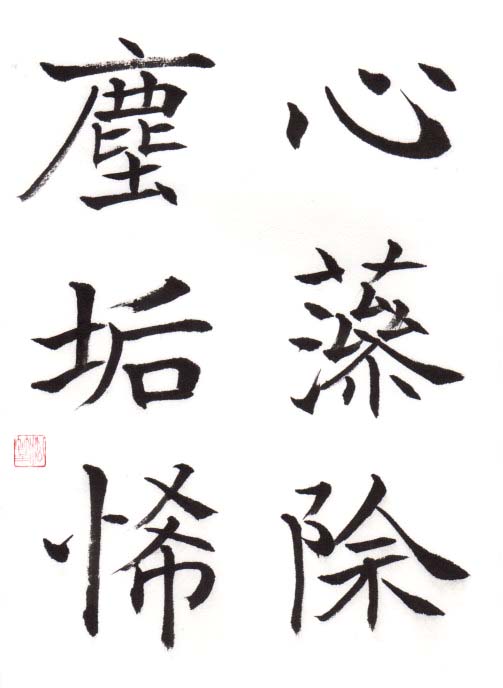 心除
塵垢悕